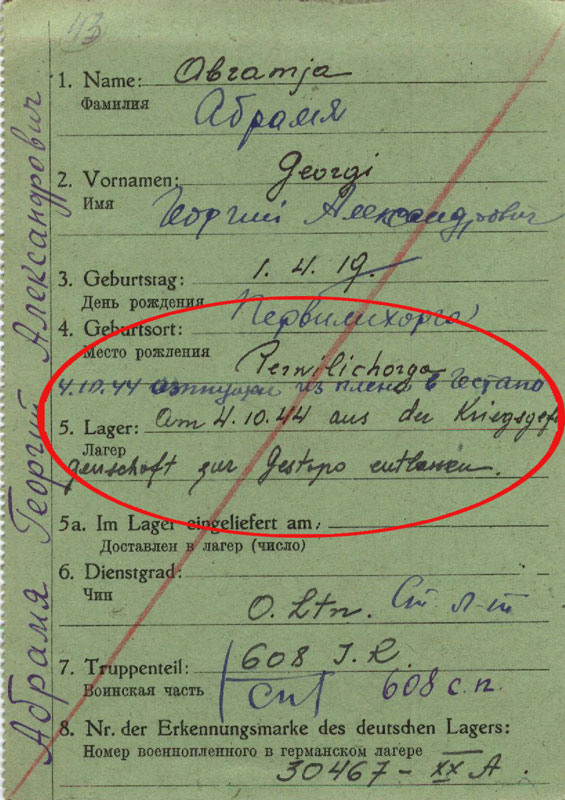 43
1. Name: Abramja
Фамилия
Абрамия
2. Vornamen: Georgi
Имя
Георгий Александрович
3. Geburtstag: 1. 4. 19.
День рождения
4. Geburtsort: Первилихорга
Место рождения Perwilichorga
4.10.44 отпущен из плена в гестапо
5. Lager: Am 4.10.44 aus der Kriegsgefan
Лагер
genschaft zur Gestapo entlassen.
5a. Im Lager eingeliefert am:
Доставлен в лагер (число)
6. Dienstgrad:
Чин
O. Ltn. Ст л-т
7. Truppenteil: 608 I.R.
Воинская часть СП 608 с.п.
8. Nr. der Erkennungsmarke des deutschen Lagers:
Номер военнопленного в германском лагере
30467 - XX A
Абрамия Георгий Александрович